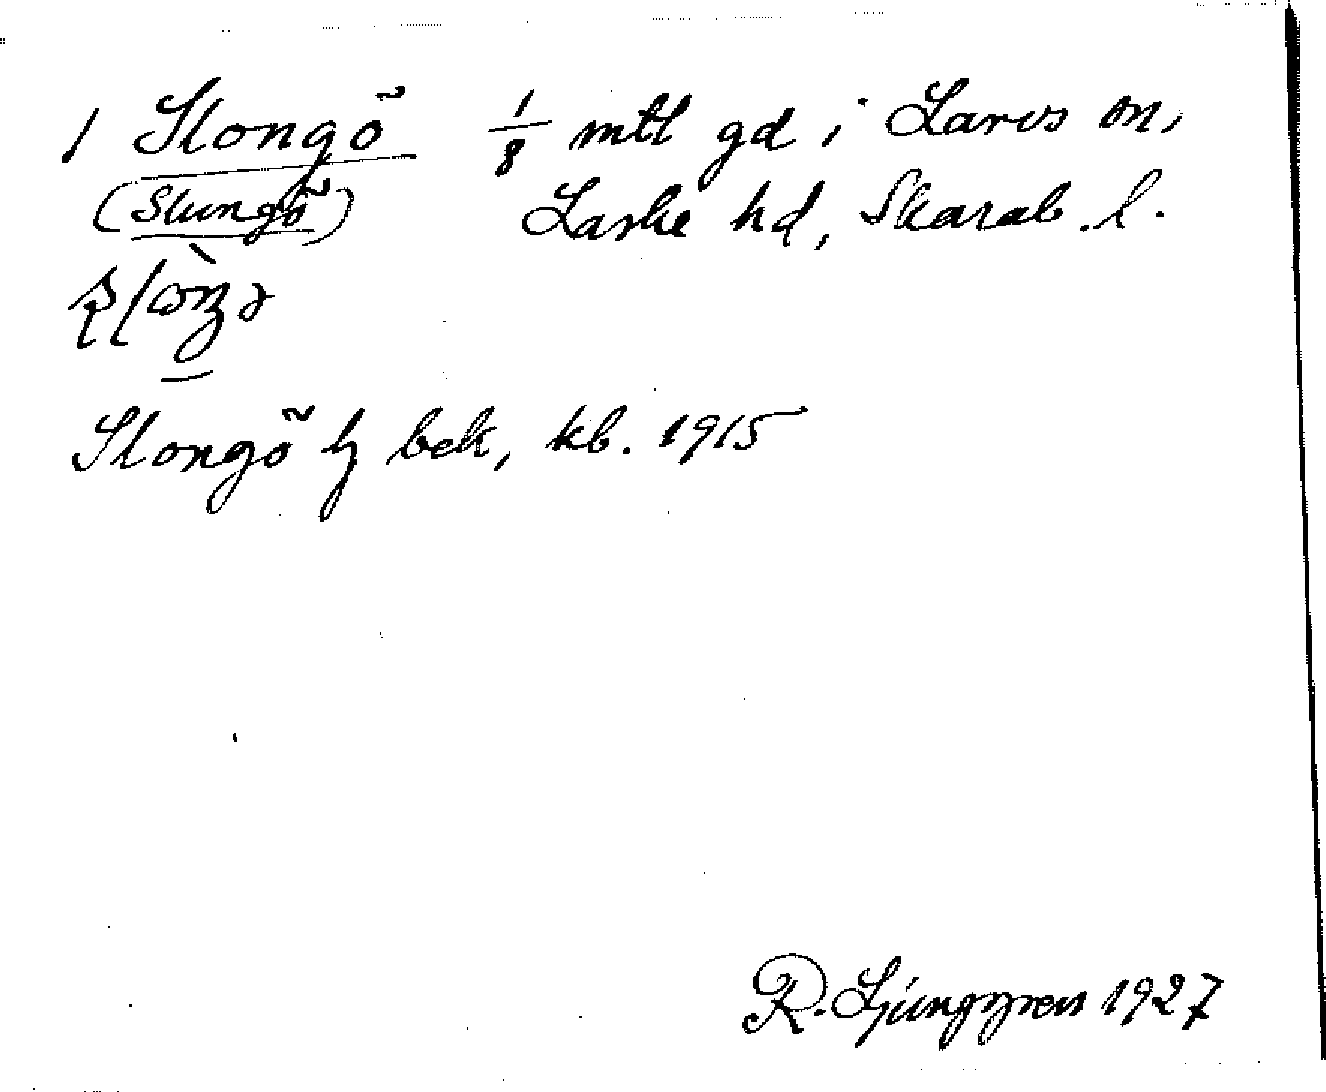 1 Slongö 1/8 mtl gd i Larvs sn,
(Slungö) Laske hd, Skarab. l.
Slongö hg bek, kb. 1915
R. Ljunggren 1927